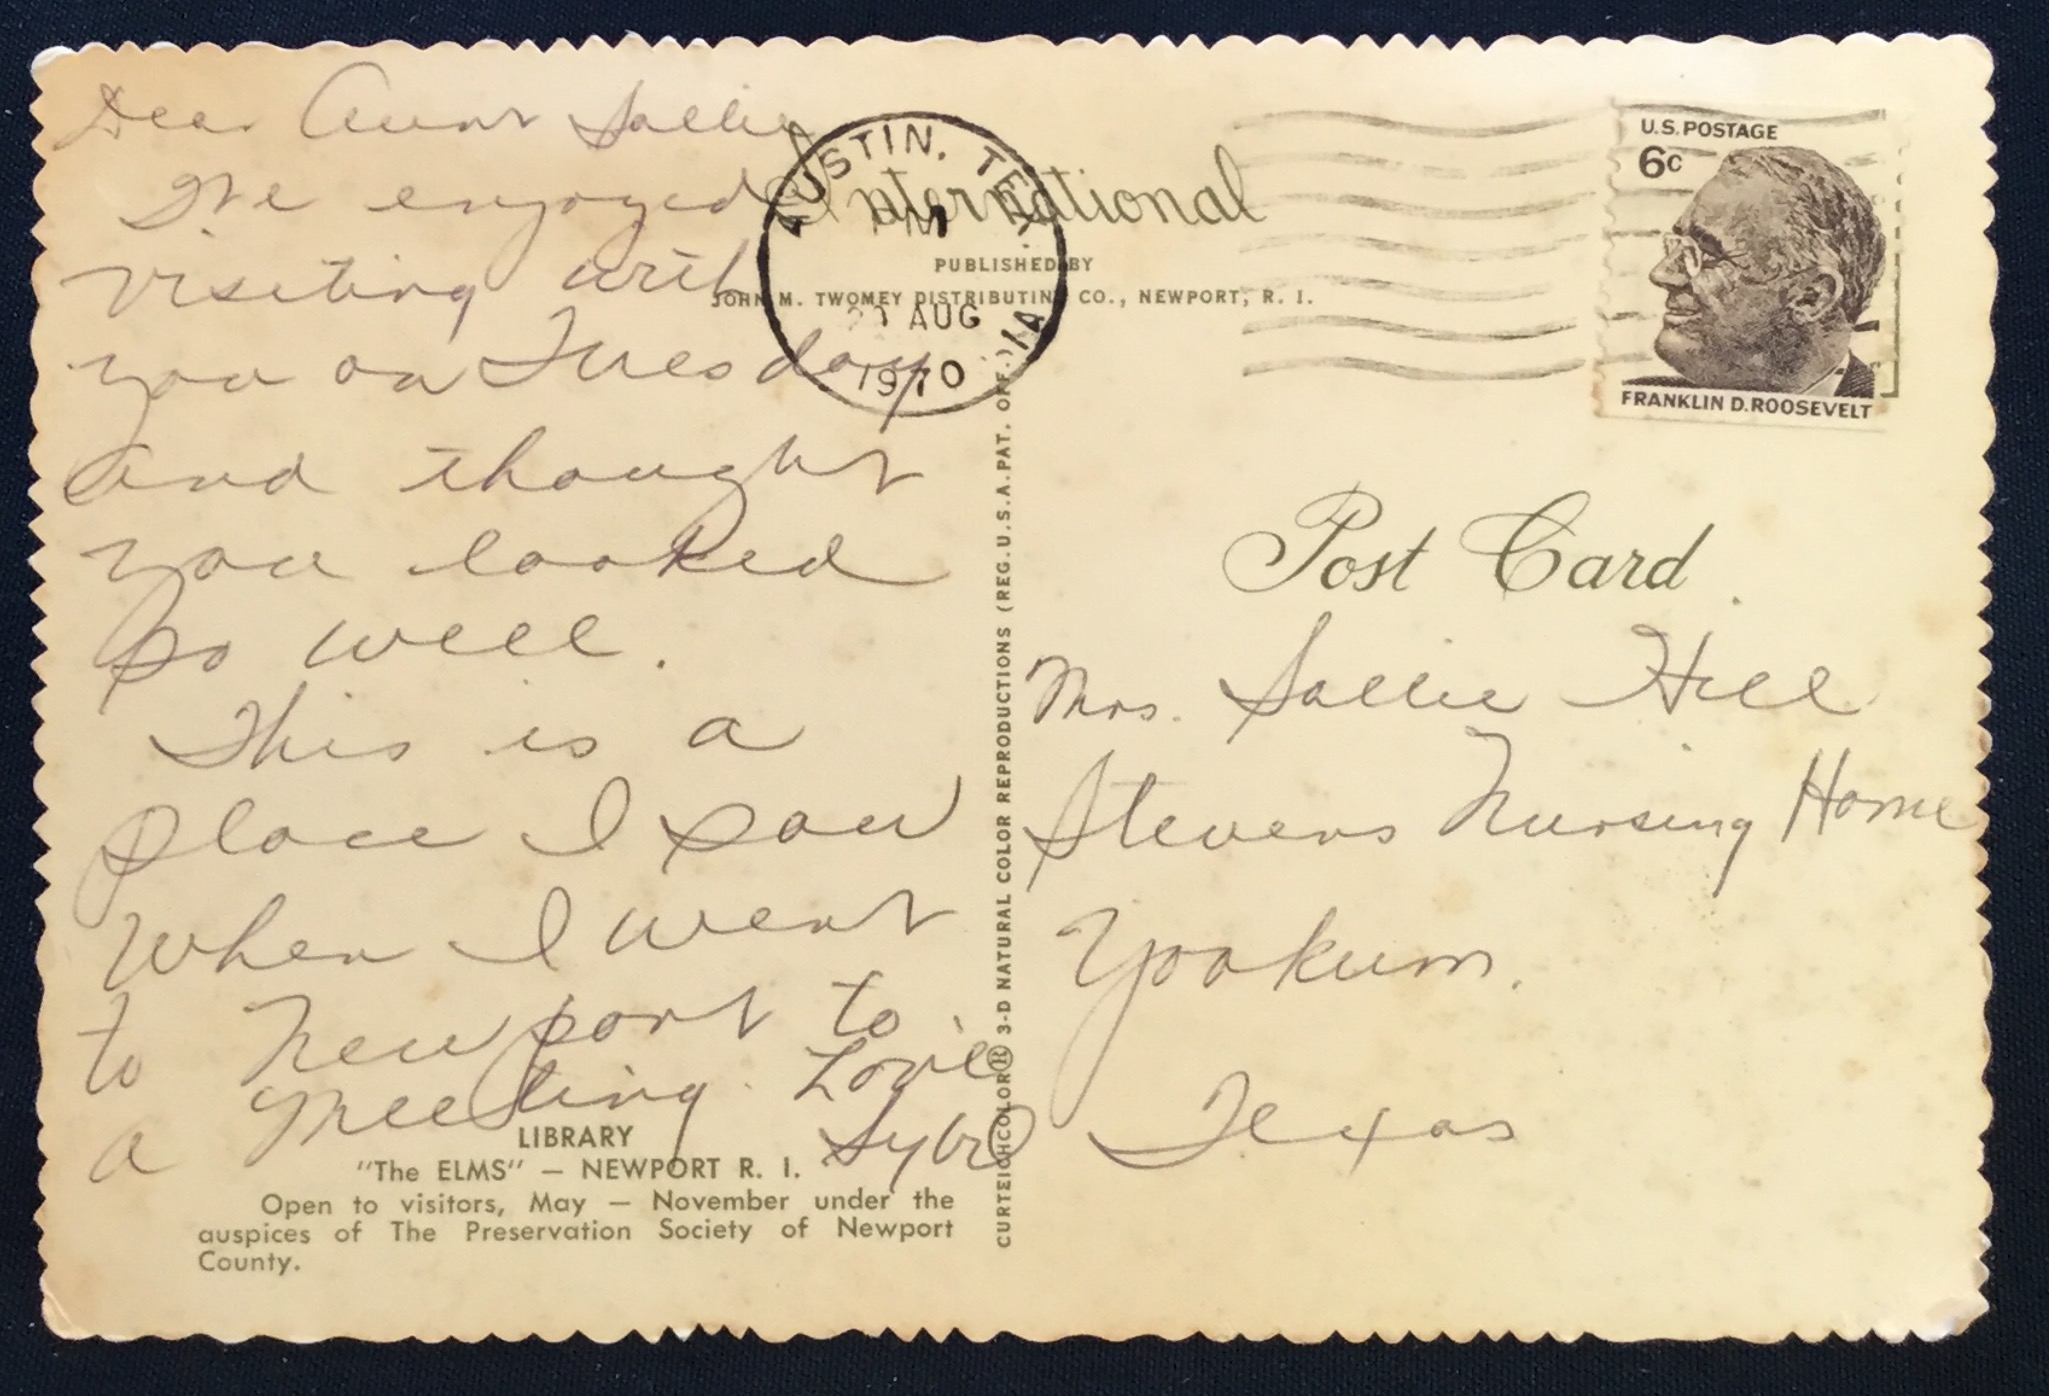 Dear Aunt Sallie
We enjoyed
visiting with
you on Tuesday
and thought
you looked
so well.
This is a
place I saw
when I went
to Newport to
a meeting. Love
LIBRARY
"The ELMS" — NEWPORT R. I.
Open to visitors, May — November under the
auspices of The Preservation Society of Newport
County.
International
PUBLISHED BY
JOHN M. TWOMEY DISTRIBUTING CO., NEWPORT, R. I.
AUSTIN, TEX
PM
AUG
1970
1A
U.S. POSTAGE
6c
FRANKLIN D. ROOSEVELT
CURTEICHCOLOR® 3-D NATURAL COLOR REPRODUCTIONS (REG. U.S.A. PAT. OFF.)
Post Card
Mrs. Sallie Hill
Stevens Nursing Home
Yoakum.
Texas